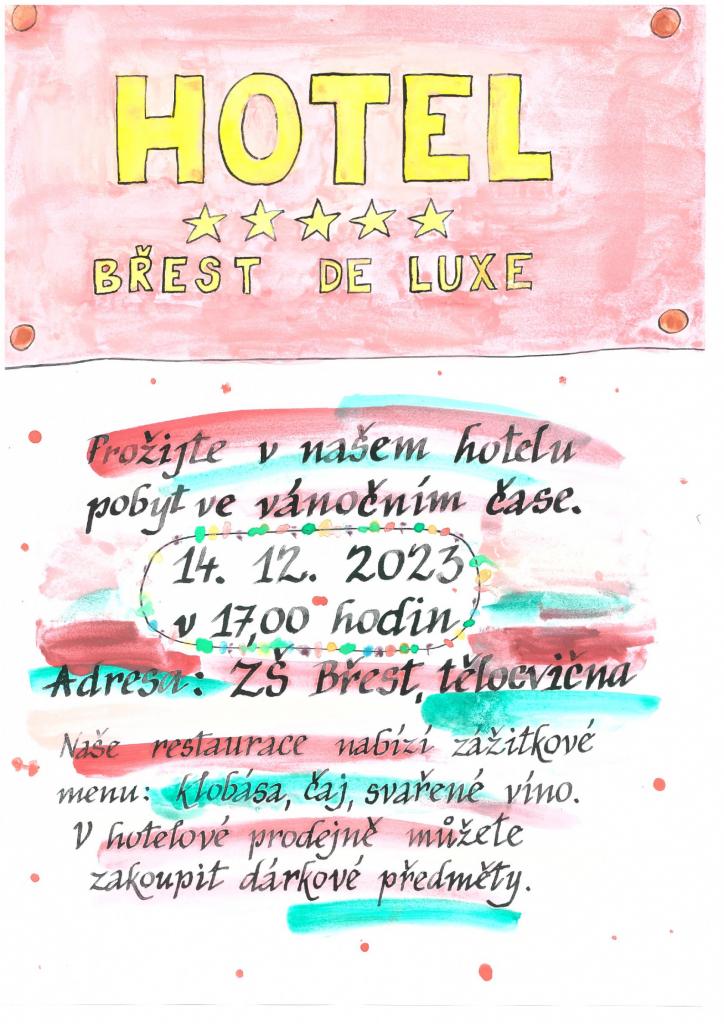 HOTEL
BŘEST DE LUXE
Prožijte v našem hotelu
pobyt ve vánočním čase.
14. 12. 2023
v 17,00 hodin
Adresa: ZŠ Břest, tělocvična
Naše restaurace nabízí zážitkové
menu: klobása, čaj, svařené víno.
V hotelové prodejně můžete
zakoupit dárkové předměty.